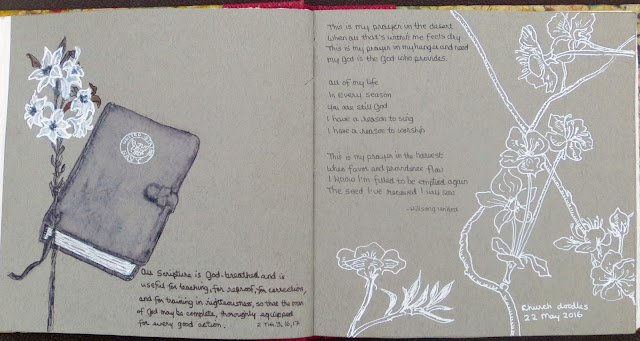 All Scripture is God-breathed and is
useful for teaching, for reproof, for correction,
and for training in righteousness, so that the man
of God may be complete, thoroughly equipped
for every good action.
2 Tim. 3, 16, 17
This is my prayer in the desert
When all that's within me feels dry
This is my prayer in my hunger and need
My God is the God who provides.
All of my life
In every season
You are still God
I have a reason to sing
I have a reason to worship
This is my prayer in the harvest
When favor and providence flow
I know I'm filled to be emptied again
The seed I've received I will sow
- Hillsong United
Church doodles
22 May 2016